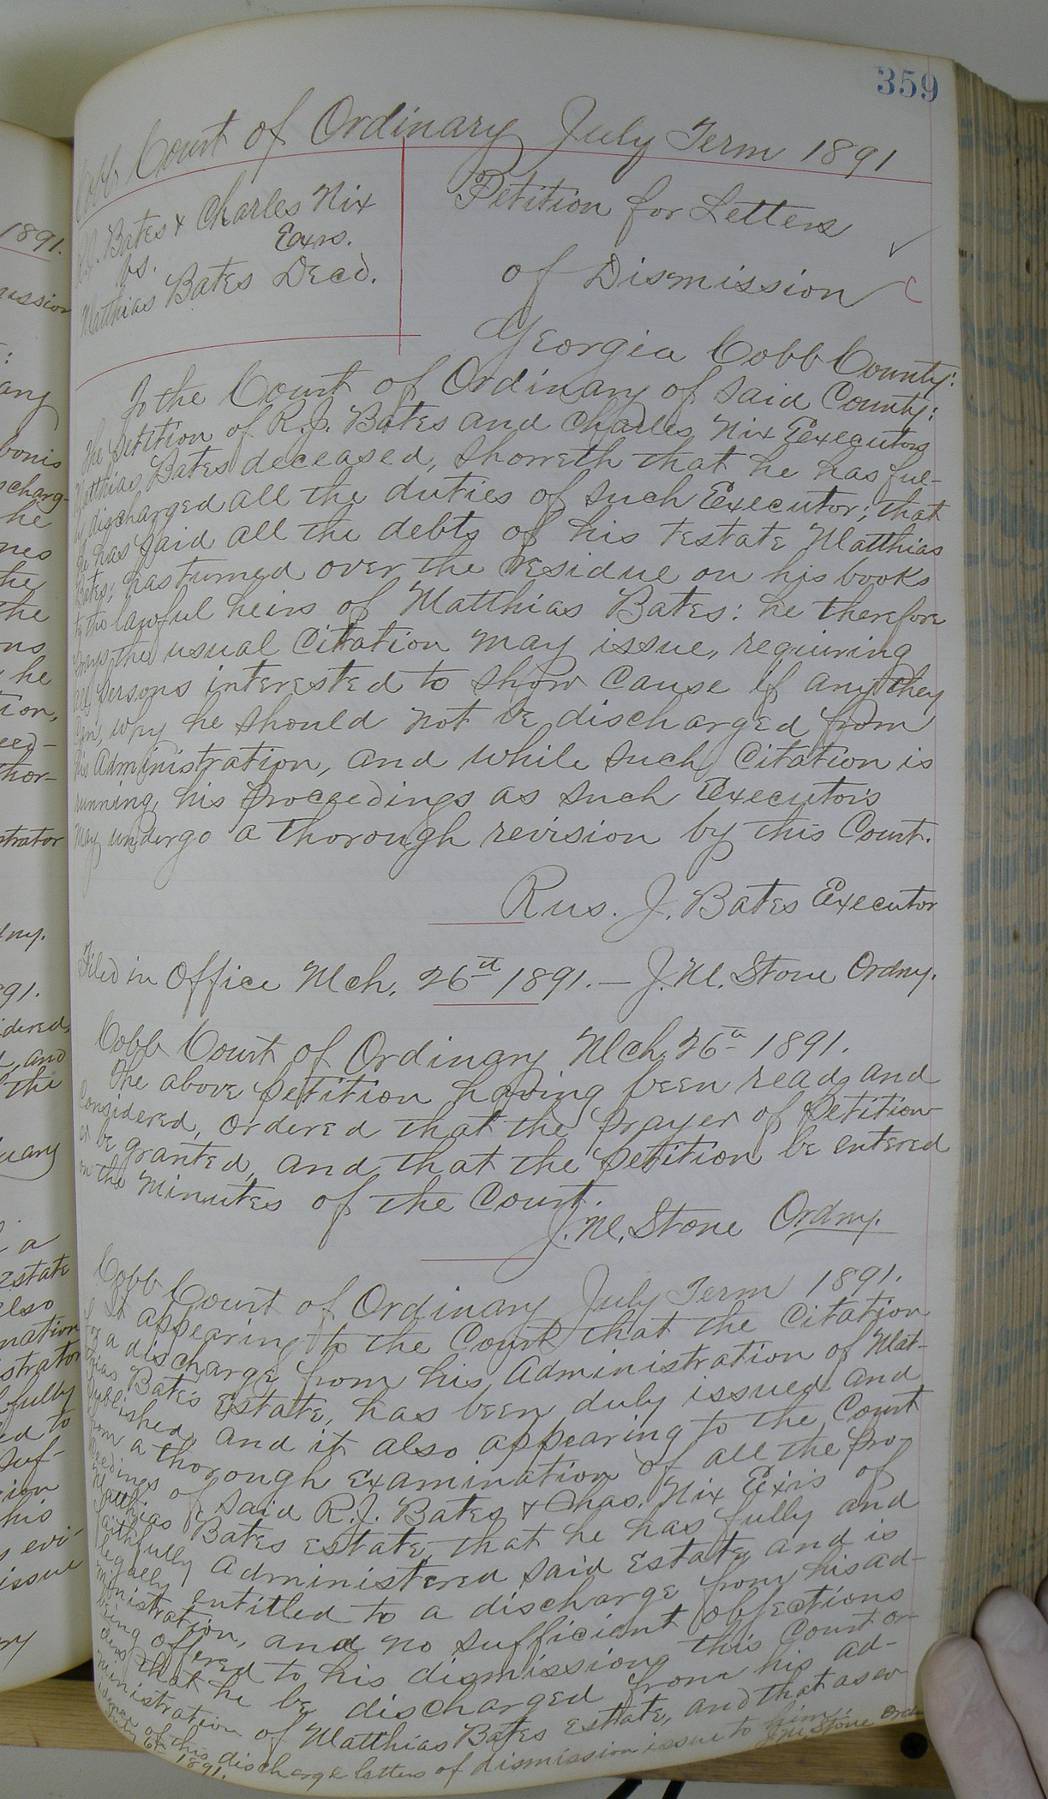 359
Cobb Court of Ordinary July Term 1891
R.J. Bates & Charles Nix
Exrs.
vs.
Matthias Bates Decd.
Petition for Letters
of Dismission
Georgia Cobb County:
To the Court of Ordinary of said County:
The Petition of R.J. Bates and Charles Nix Eexecutors
Matthias Bates deceased, Showeth that he has ful-
ly discharged all the duties of such Executor; that
he has paid all the debts of his testate Matthias
Bates; has turned over the residue on his books
to the lawful heirs of Matthias Bates: he therefore
prays the usual Citation may issue, requiring
all persons interested to show cause if any they
can, why he should not be discharged from
his Administration, and while such Citation is
running, his proceedings as such Executors
may undergo a thorough revision by this Court.
Rus. J. Bates Executor
Filed in Office Mch. 26th 1891. — J.M. Stone Ordny.
Cobb Court of Ordinary Mch. 26th 1891.
The above petition having been read and
Considered, ordered that the prayer of petition-
er be granted, and that the petition be entered
on the minutes of the Court.
J.M. Stone Ordny.
Cobb Court of Ordinary July Term 1891.
It appearing to the Court that the Citation
for a discharge from his Administration of Mat-
thias Bates Estate, has been duly issued and
published, and it also appearing to the Court
from a thorough examination of all the pro-
ceedings of said R.J. Bates & Chas. Nix Exrs of
Matthias Bates estate, that he has fully and
faithfully Administered said estate, and is
legally entitled to a discharge from his ad-
ministration, and no sufficient objections
being offered to his dismission, this Court or-
ders that he be discharged from his ad-
ministration of Matthias Bates estate, and that as ev-
idence of this discharge letters of dismission issue to him.
July 6th 1891. J.M. Stone Ord
1891.